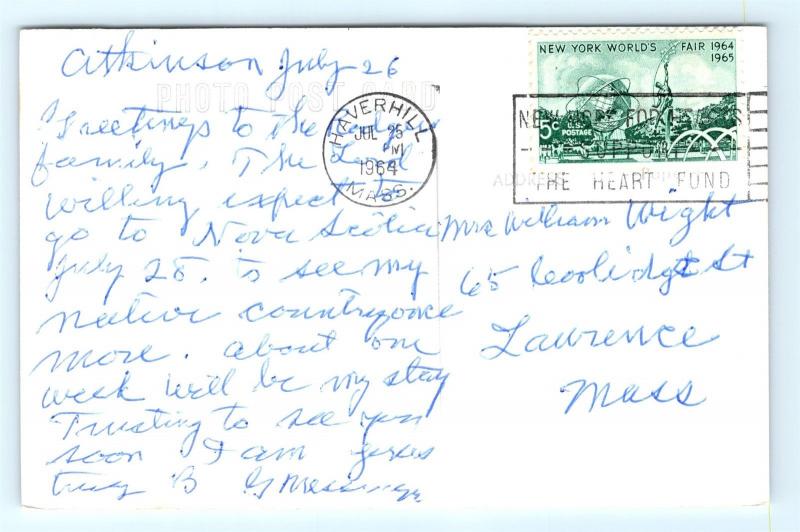 Atkinson July 26
PHOTO POST CARD
Greetings to the
family, The Lord
willing expect to
go to Nova Scotia
July 28. to see my
native country once
more. about one
week will be my stay
Trusting to see you
soon I am yours
truly B G Messenger
HAVERHILL
JUL 25
PM
1964
MASS.
NEW YORK WORLD'S FAIR 1964
1965
5c
U.S. POSTAGE
NEW HOPE FOR HEARTS
SUPPORT
THE HEART FUND
ADDRESS
Mrs William Wight
65 Coolidge St
Lawrence
Mass